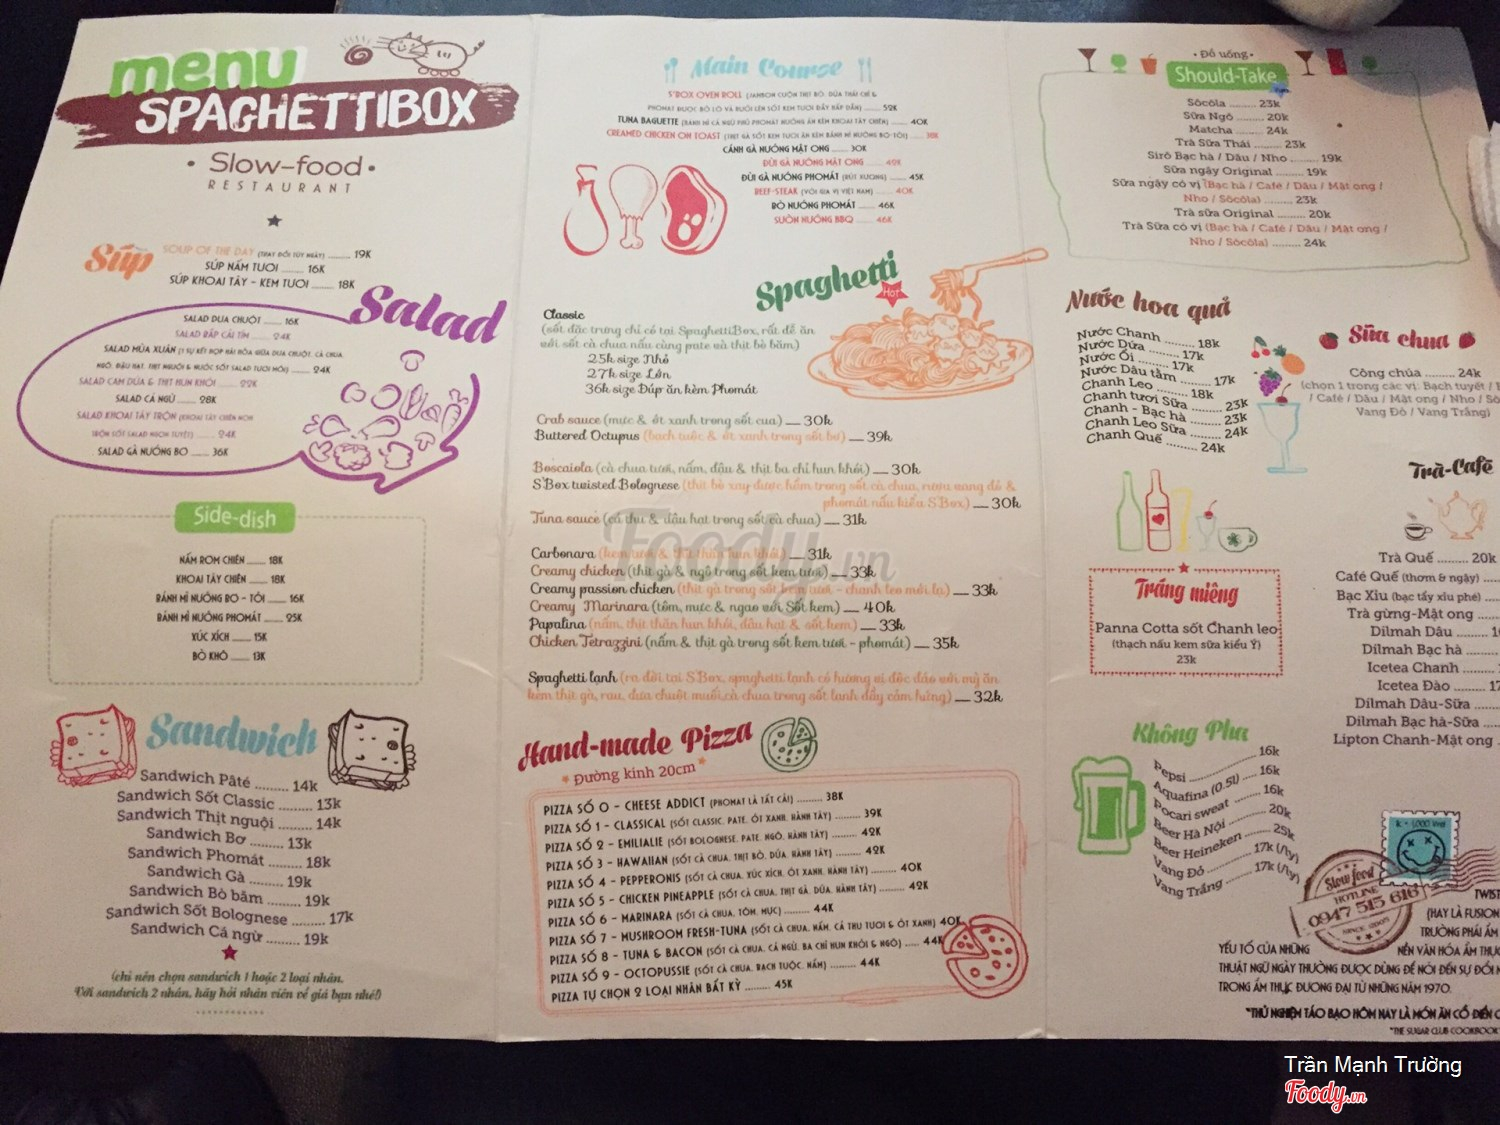 menu
SPAGHETTIBOX
• Slow-food •
RESTAURANT
Súp
SOUP OF THE DAY (THAY ĐỔI TÙY NGÀY) ........ 19K
SÚP NẤM TƯƠI ........ 16K
SÚP KHOAI TÂY - KEM TƯƠI ........ 18K
Salad
SALAD DƯA CHUỘT ........ 16K
SALAD BẮP CẢI TÍM ........ 24K
SALAD MÙA XUÂN (1 SỰ KẾT HỢP HÀI HÒA GIỮA DƯA CHUỘT, CÀ CHUA,
NGÔ, ĐẬU HẠT, THỊT NGUỘI & NƯỚC SỐT SALAD TƯƠI MỚI) ........ 24K
SALAD CAM DỨA & THỊT HUN KHÓI ........ 22K
SALAD CÁ NGỪ ........ 28K
SALAD KHOAI TÂY TRỘN (KHOAI TÂY CHIÊN NON
TRỘN SỐT SALAD NGON TUYỆT) ........ 24K
SALAD GÀ NƯỚNG BƠ ........ 36K
Side-dish
NẤM RƠM CHIÊN ........ 18K
KHOAI TÂY CHIÊN ........ 18K
BÁNH MÌ NƯỚNG BƠ - TỎI ........ 16K
BÁNH MÌ NƯỚNG PHOMÁT ........ 25K
XÚC XÍCH ........ 15K
BÒ KHÔ ........ 13K
Sandwich
Sandwich Pâté ........ 14k
Sandwich Sốt Classic ........ 13k
Sandwich Thịt nguội ........ 14k
Sandwich Bơ ........ 13k
Sandwich Phomát ........ 18k
Sandwich Gà ........ 19k
Sandwich Bò băm ........ 19k
Sandwich Sốt Bolognese ........ 17k
Sandwich Cá ngừ ........ 19k
(chỉ nên chọn sandwich 1 hoặc 2 loại nhân.
Với sandwich 2 nhân, hãy hỏi nhân viên về giá bạn nhé!)
Main Course
S'BOX OVEN ROLL (JAMBON CUỘN THỊT BÒ, DỨA THÁI CHỈ &
PHOMAT ĐƯỢC BỎ LÒ VÀ RƯỚI LÊN SỐT KEM TƯƠI ĐẦY HẤP DẪN) ........ 52K
TUNA BAGUETTE (BÁNH MÌ CÁ NGỪ PHỦ PHOMÁT NƯỚNG ĂN KÈM KHOAI TÂY CHIÊN) ........ 40K
CREAMED CHICKEN ON TOAST (THỊT GÀ SỐT KEM TƯƠI ĂN KÈM BÁNH MÌ NƯỚNG BƠ-TỎI) ........ 38K
CÁNH GÀ NƯỚNG MẬT ONG ........ 30K
ĐÙI GÀ NƯỚNG MẬT ONG ........ 42K
ĐÙI GÀ NƯỚNG PHOMÁT (RÚT XƯƠNG) ........ 45K
BEEF-STEAK (VỚI GIA VỊ VIỆT NAM) ........ 40K
BÒ NƯỚNG PHOMÁT ........ 46K
SƯỜN NƯỚNG BBQ ........ 46K
Spaghetti
Hot
Classic
(sốt đặc trưng chỉ có tại SpaghettiBox, rất dễ ăn
với sốt cà chua nấu cùng pate và thịt bò băm)
25k size Nhỏ
27k size Lớn
36k size Đúp ăn kèm Phomát
Crab sauce (mực & ớt xanh trong sốt cua) — 30k
Buttered Octupus (bạch tuộc & ớt xanh trong sốt bơ) — 39k
Boscaiola (cà chua tươi, nấm, đậu & thịt ba chỉ hun khói) — 30k
S'Box twisted Bolognese (thịt bò xay được hầm trong sốt cà chua, rượu vang đỏ &
phomát nấu kiểu S'Box) — 30k
Tuna sauce (cá thu & đậu hạt trong sốt cà chua) — 31k
Carbonara (kem tươi & thịt thăn hun khói) — 31k
Creamy chicken (thịt gà & ngô trong sốt kem tươi) — 33k
Creamy passion chicken (thịt gà trong sốt kem tươi - chanh leo mới lạ) — 33k
Creamy Marinara (tôm, mực & ngao với Sốt kem) — 40k
Papalina (nấm, thịt thăn hun khói, đậu hạt & sốt kem) — 33k
Chicken Tetrazzini (nấm & thịt gà trong sốt kem tươi - phomát) — 35k
Spaghetti lạnh (ra đời tại S'Box, spaghetti lạnh có hương vị độc đáo với mỳ ăn
kèm thịt gà, rau, dưa chuột muối,cà chua trong sốt lạnh đầy cảm hứng) — 32k
Hand-made Pizza
* Đường kính 20cm *
PIZZA SỐ 0 - CHEESE ADDICT (PHOMAT LÀ TẤT CẢ!) ........ 38K
PIZZA SỐ 1 - CLASSICAL (SỐT CLASSIC, PATE, ỚT XANH, HÀNH TÂY) ........ 39K
PIZZA SỐ 2 - EMILIALIE (SỐT BOLOGNESE, PATE, NGÔ, HÀNH TÂY) ........ 42K
PIZZA SỐ 3 - HAWAIIAN (SỐT CÀ CHUA, THỊT BÒ, DỨA, HÀNH TÂY) ........ 42K
PIZZA SỐ 4 - PEPPERONIS (SỐT CÀ CHUA, XÚC XÍCH, ỚT XANH, HÀNH TÂY) ........ 40K
PIZZA SỐ 5 - CHICKEN PINEAPPLE (SỐT CÀ CHUA, THỊT GÀ, DỨA, HÀNH TÂY) ........ 42K
PIZZA SỐ 6 - MARINARA (SỐT CÀ CHUA, TÔM, MỰC) ........ 44K
PIZZA SỐ 7 - MUSHROOM FRESH-TUNA (SỐT CÀ CHUA, NẤM, CÁ THU TƯƠI & ỚT XANH) 40K
PIZZA SỐ 8 - TUNA & BACON (SỐT CÀ CHUA, CÁ NGỪ, BA CHỈ HUN KHÓI & NGÔ) ..... 44K
PIZZA SỐ 9 - OCTOPUSSIE (SỐT CÀ CHUA, BẠCH TUỘC, NẤM) ........ 44K
PIZZA TỰ CHỌN 2 LOẠI NHÂN BẤT KỲ ........ 45K
• Đồ uống •
Should-Take
Sôcôla ........ 23k
Sữa Ngô ........ 20k
Matcha ........ 24k
Trà Sữa Thái ........ 23k
Sirô Bạc hà / Dâu / Nho ........ 19k
Sữa ngậy Original ........ 19k
Sữa ngậy có vị (Bạc hà / Café / Dâu / Mật ong /
Nho / Sôcôla) ........ 23k
Trà sữa Original ........ 20k
Trà Sữa có vị (Bạc hà / Café / Dâu / Mật ong /
Nho / Sôcôla) ........ 24k
Nước hoa quả
Nước Chanh ........ 18k
Nước Dừa ........ 17k
Nước Ổi ........ 17k
Nước Dâu tằm ........ 17k
Chanh Leo ........ 18k
Chanh tươi Sữa ........ 23k
Chanh - Bạc hà ........ 23k
Chanh Leo Sữa ........ 24k
Chanh Quế ........ 24k
Sữa chua
Công chúa ........ 24k
(chọn 1 trong các vị: Bạch tuyết /
/ Café / Dâu / Mật ong / Nho /
Vang Đỏ / Vang Trắng)
Trà-Café
Trà Quế ........ 20k
Café Quế (thơm & ngậy) .....
Bạc Xỉu (bạc tẩy xỉu phé) .....
Trà gừng-Mật ong .....
Dilmah Dâu .....
Dilmah Bạc hà .....
Icetea Chanh .....
Icetea Đào ..... 17
Dilmah Dâu-Sữa .....
Dilmah Bạc hà-Sữa .....
Lipton Chanh-Mật ong .....
Tráng miệng
Panna Cotta sốt Chanh leo
(thạch nấu kem sữa kiểu Ý)
23k
Không Pha
Pepsi ........ 16k
Aquafina (0.5l) ........ 16k
Pocari sweat ........ 16k
Beer Hà Nội ........ 20k
Beer Heineken ........ 25k
Vang Đỏ ........ 17k (/ly)
Vang Trắng ........ 17k (/ly)
K = 1,000 VND
Slow food
HOTLINE
0947 515 616
TWIST
(HAY LÀ FUSION
TRƯỜNG PHÁI ẨM
YẾU TỐ CỦA NHỮNG NỀN VĂN HÓA ẨM THỰC
THUẬT NGỮ NÀY THƯỜNG ĐƯỢC DÙNG ĐỂ NÓI ĐẾN SỰ ĐỔI
TRONG ẨM THỰC ĐƯƠNG ĐẠI TỪ NHỮNG NĂM 1970.
"THỬ NGHIỆM TÁO BẠO HÔM NAY LÀ MÓN ĂN CỔ ĐIỂN
"THE SUGAR CLUB COOKBOOK"
Foody.vn
Trần Mạnh Trường
Foody.vn